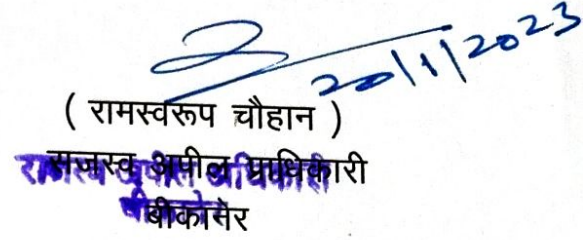 20/1/2023
( रामस्वरूप चौहान )
राजस्व अपील प्राधिकारी
बीकानेर